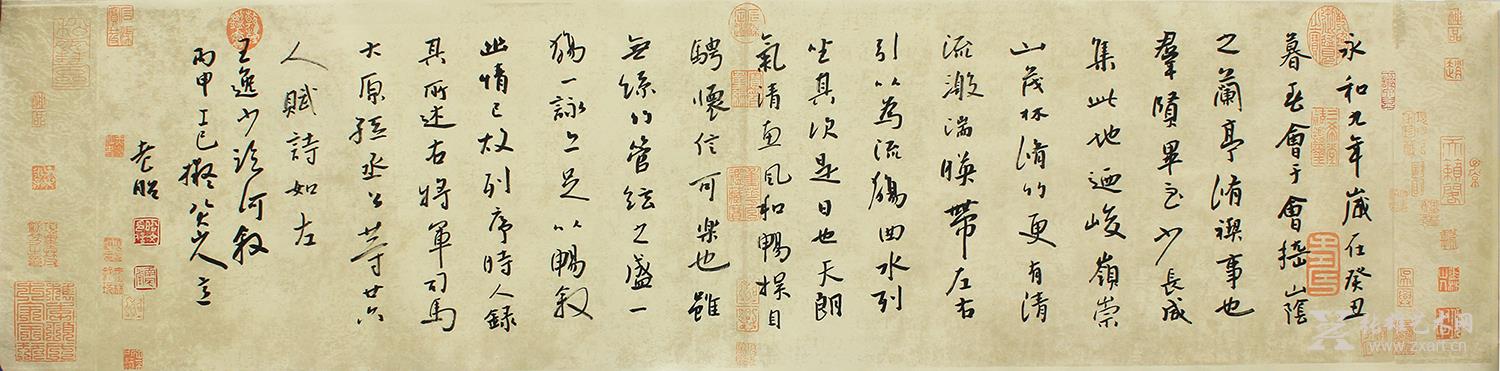 永和九年歲在癸丑
暮春會于會稽山陰
之蘭亭脩禊事也
羣賢畢至少長咸
集此地迺峻嶺崇
山茂林脩竹更有清
流激湍暎帶左右
引以為流觴曲水列
坐其次是日也天朗
氣清惠風和暢娛目
騁懷信可樂也雖
無絲竹管絃之盛一
觴一詠亦足以暢敘
此情已故列序時人錄
其所述右將軍司馬
太原孫丞公等廿六
人賦詩如左
王逸少臨河敘
丙申上巳擬八大山人意
老昭
天籟閣
张雄艺术网
www.zxart.cn